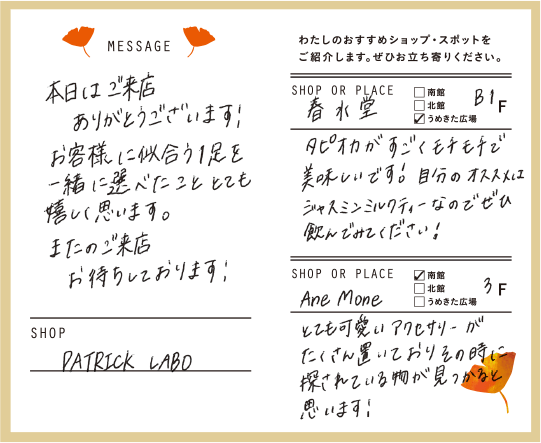 MESSAGE
本日はご来店
ありがとうございます!
お客様に似合う1足を
一緒に選べたこととても
嬉しく思います。
またのご来店
お待ちしております!
SHOP
PATRICK LABO
わたしのおすすめショップ・スポットを
ご紹介します。ぜひお立ち寄りください。
SHOP OR PLACE
春水堂
南館
北館
うめきた広場
B1F
タピオカがすごくモチモチで
美味しいです!自分のオススメは
ジャスミンミルクティーなのでぜひ
飲んでみてください!
SHOP OR PLACE
Ane Mone
南館
北館
うめきた広場
3F
とても可愛いアクセサリーが
たくさん置いておりその時に
探されている物が見つかると
思います!